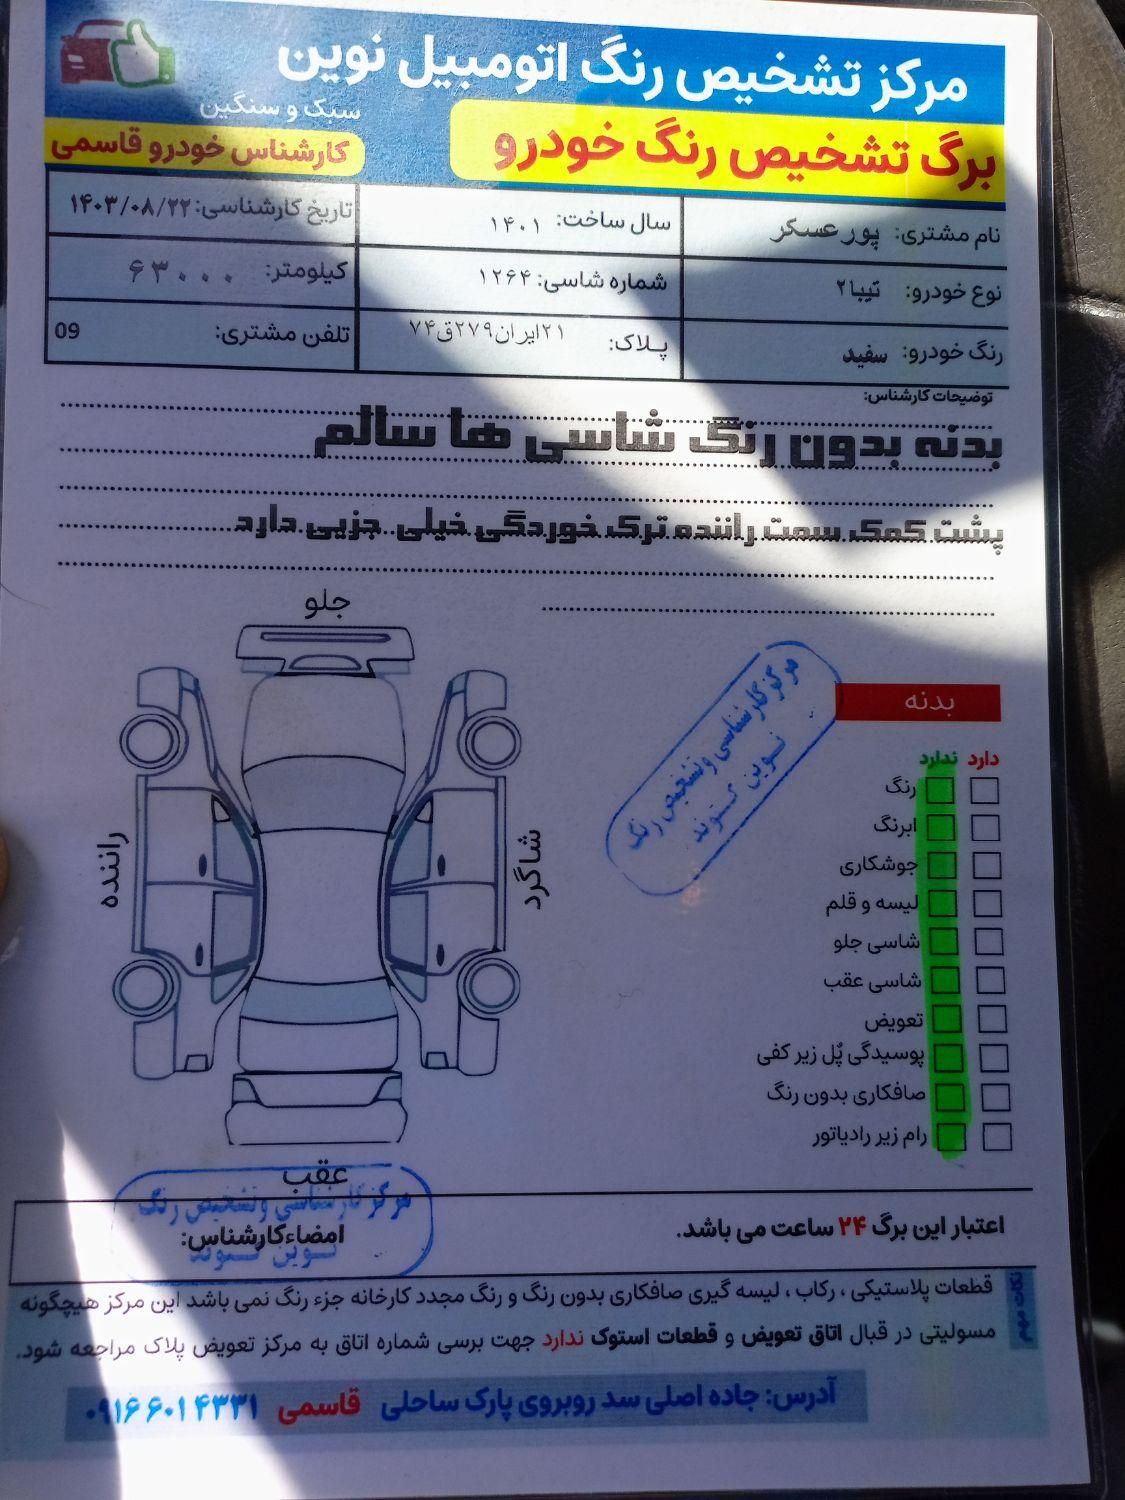 مرکز تشخیص رنگ اتومبیل نوین
سبک و سنگین
برگ تشخیص رنگ خودرو
کارشناس خودرو قاسمی
نام مشتری: پور عسکر
سال ساخت: ۱۴۰۱
تاریخ کارشناسی: ۱۴۰۳/۰۸/۲۲
نوع خودرو: تیبا۲
شماره شاسی: ۱۲۶۴
کیلومتر: ۶۳۰۰۰
رنگ خودرو: سفید
پلاک: ۲۱ایران۲۷۹ق۷۴
تلفن مشتری: 09
توضیحات کارشناس:
بدنه بدون رنگ شاسی ها سالم
پشت کمک سمت راننده ترک خوردگی خیلی جزیی دارد
جلو
راننده
شاگرد
عقب
مرکز کارشناسی و تشخیص رنگ
نوین
بدنه
دارد ندارد
رنگ
ابرنگ
جوشکاری
لیسه و قلم
شاسی جلو
شاسی عقب
تعویض
پوسیدگی پُل زیر کفی
صافکاری بدون رنگ
رام زیر رادیاتور
اعتبار این برگ ۲۴ ساعت می باشد.
امضاءکارشناس:
مرکز کارشناسی و تشخیص رنگ
نوین
نکات مهم
قطعات پلاستیکی ، رکاب ، لیسه گیری صافکاری بدون رنگ و رنگ مجدد کارخانه جزء رنگ نمی باشد این مرکز هیچگونه
مسولیتی در قبال اتاق تعویض و قطعات استوک ندارد جهت برسی شماره اتاق به مرکز تعویض پلاک مراجعه شود.
آدرس: جاده اصلی سد روبروی پارک ساحلی قاسمی ۰۹۱۶۶۰۱۴۳۳۱